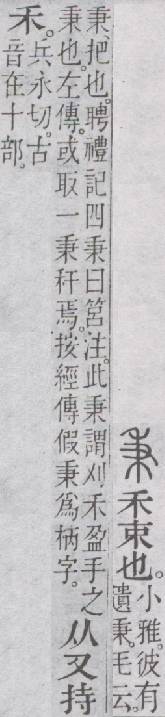 秉禾束也。小雅。彼有
遺秉。毛云。
秉、把也。聘禮記四秉曰筥注。此秉謂刈禾盈手之
秉也。左傳。或取一秉秆焉。按經傳假秉爲柄字。从又持
禾。兵永切。古
音在十部。